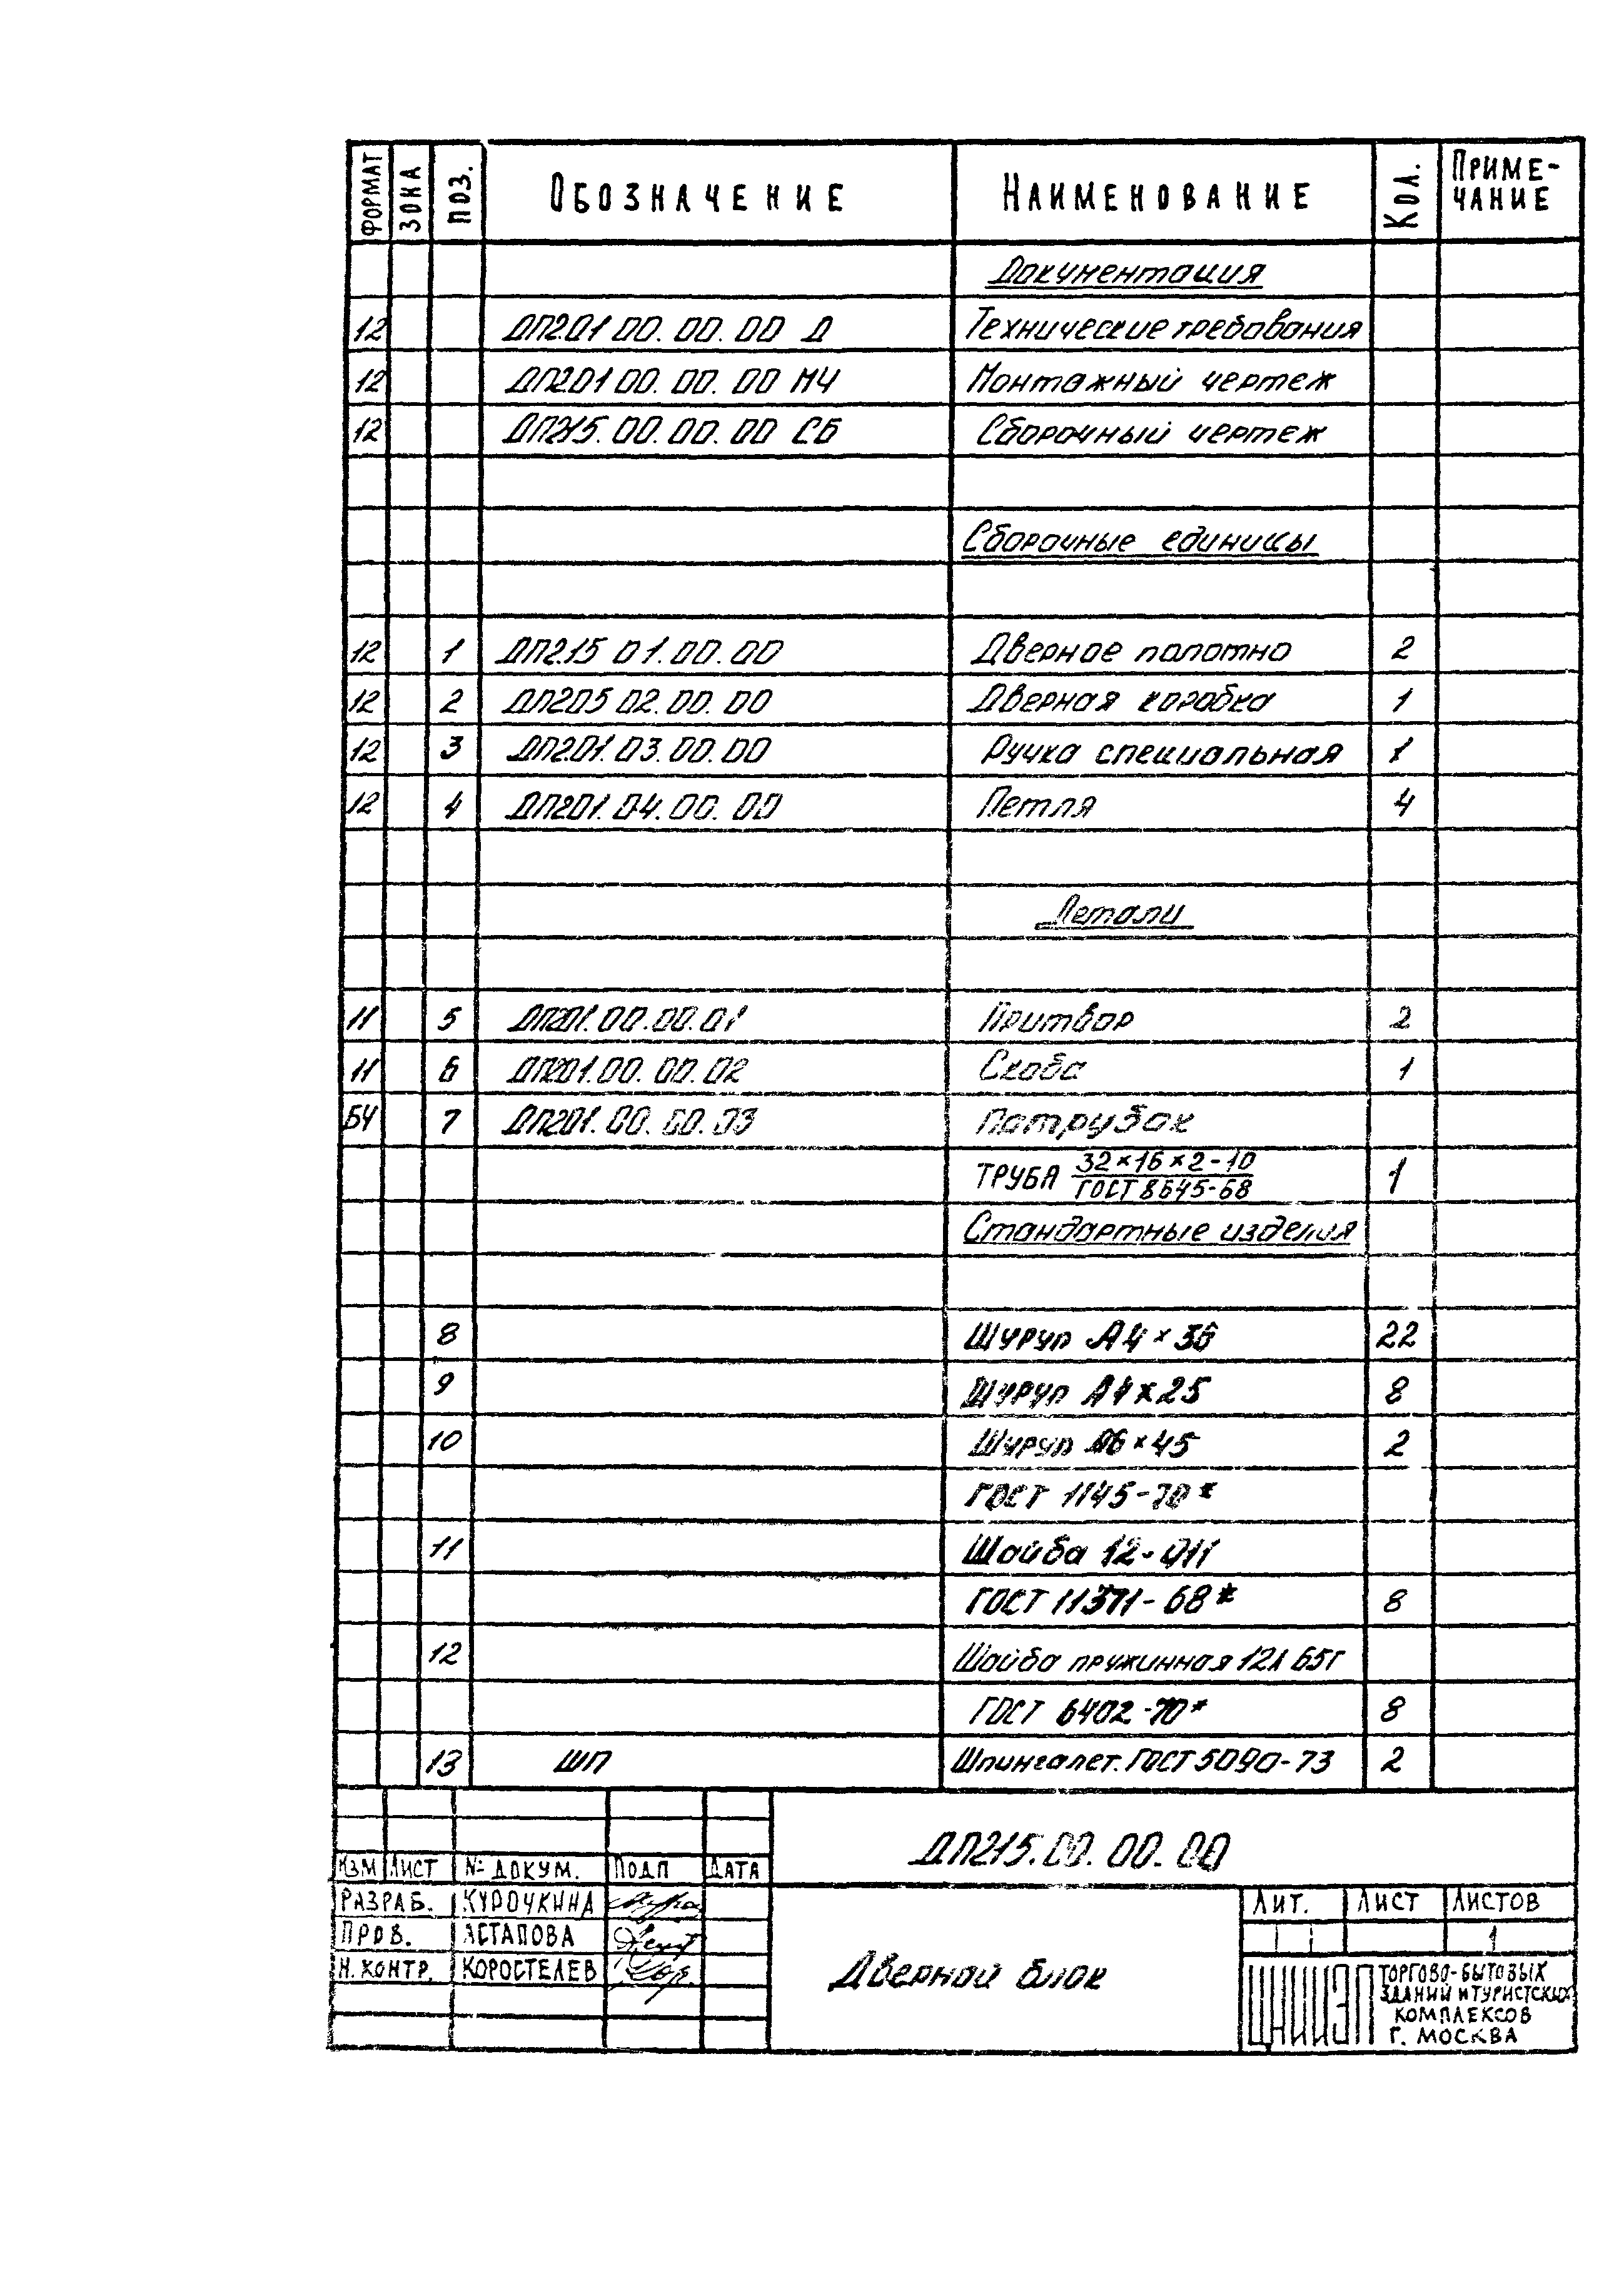 ФОРМАТ ЗОНА ПОЗ. ОБОЗНАЧЕНИЕ НАИМЕНОВАНИЕ КОЛ. ПРИМЕ-
ЧАНИЕ
Документация
12 ДП201 00. 00. 00 Д Технические требования
12 ДП201 00. 00. 00 МЧ Монтажный чертеж
12 ДП215. 00. 00. 00 СБ Сборочный чертеж
Сборочные единицы
12 1 ДП215 01. 00. 00 Дверное полотно 2
12 2 ДП205 02. 00. 00 Дверная коробка 1
12 3 ДП201. 03. 00. 00 Ручка специальная 1
12 4 ДП201. 04. 00. 00 Петля 4
Детали
11 5 ДП201. 00. 00. 01 Притвор 2
11 6 ДП201. 00. 00. 02 Скоба 1
БЧ 7 ДП201. 00. 00. 03 Патрубок
ТРУБА 32×16×2-10
ГОСТ 8645-68 1
Стандартные изделия
8 Шуруп А4×36 22
9 Шуруп А4×25 8
10 Шуруп А6×45 2
ГОСТ 1145-70*
11 Шайба 12-011
ГОСТ 11371-68* 8
12 Шайба пружинная 12Л 65Г
ГОСТ 6402-70* 8
13 ШП Шпингалет. ГОСТ 5090-73 2
ДП215. 00. 00. 00
ИЗМ ЛИСТ № ДОКУМ. ПОДП ДАТА
РАЗРАБ. КУРОЧКИНА
ПРОВ. АСТАПОВА
Н. КОНТР. КОРОСТЕЛЕВ
Дверной блок
ЛИТ. ЛИСТ ЛИСТОВ
1
ЦНИИЭП ТОРГОВО-БЫТОВЫХ
ЗДАНИЙ И ТУРИСТСКИХ
КОМПЛЕКСОВ
Г. МОСКВА